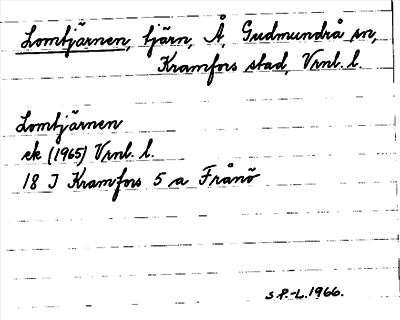 Lomtjärnen, tjärn, Å, Gudmundrå sn,
Kramfors stad, Vrnl. l.
Lomtjärnen
ek (1965) Vrnl. l.
18 I Kramfors 5 a Frånö
S.P.-L. 1966.